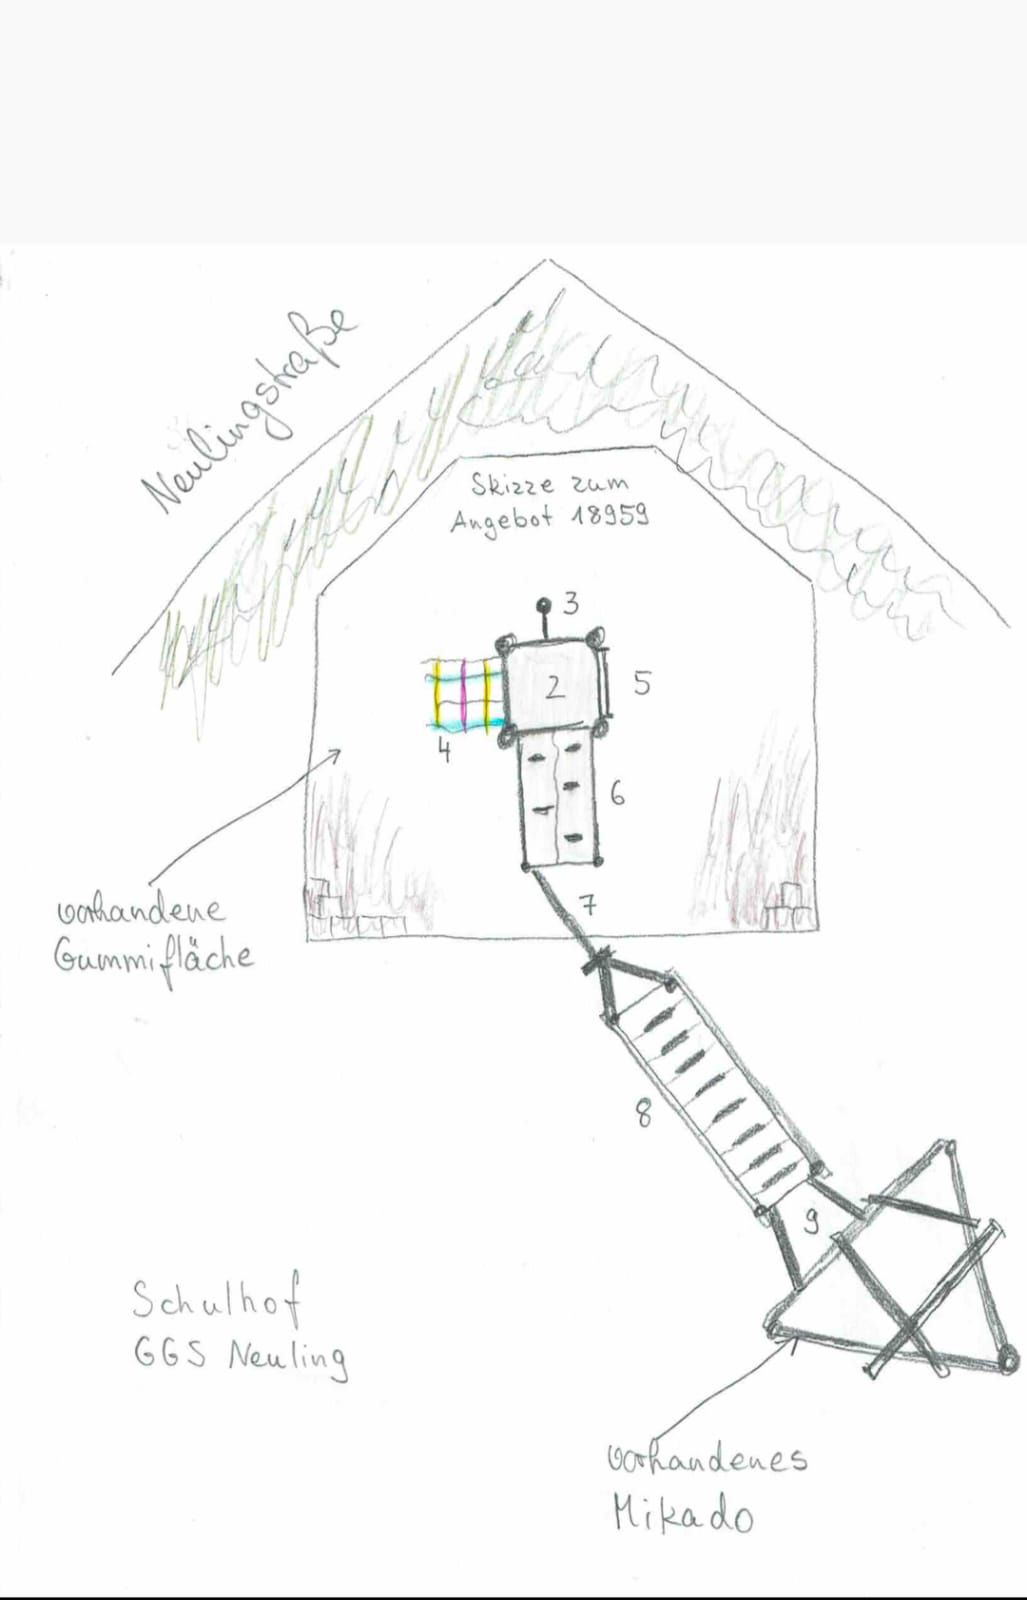 Neulingstraße
Skizze zum
Angebot 18959
3
2
5
4
6
7
vorhandene
Gummifläche
8
9
Schulhof
GGS Neuling
vorhandenes
Mikado